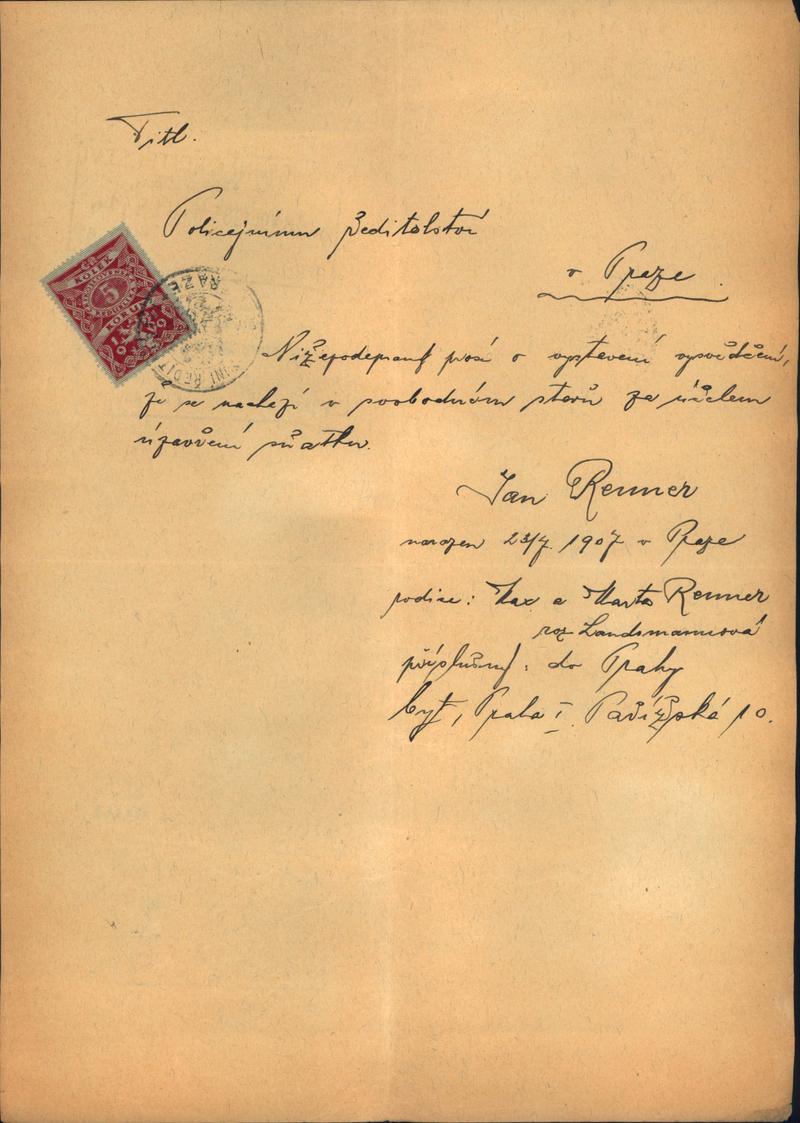 Titl.
Policejnímu ředitelství
v Praze
KOLEK
5
KORUN
1919
Nížepodepsaný prosí o vystavení vysvědčení,
že se nachází v svobodném stavu za účelem
uzavření sňatku.
Jan Renner
narozen 23/7. 1907 v Praze
rodiče: Max a Marta Renner
roz Landsmannová
příslušný: do Prahy
byt, Praha I. Pařížská 10.